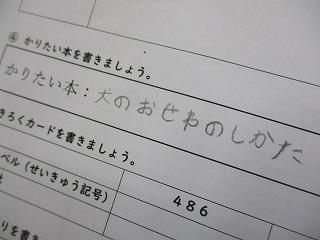 ④ かりたい本を書きましょう。
かりたい本：犬のおせわのしかた
きろくカードを書きましょう。
ベル（せいきゅう記号）
486
りを書きましょう。